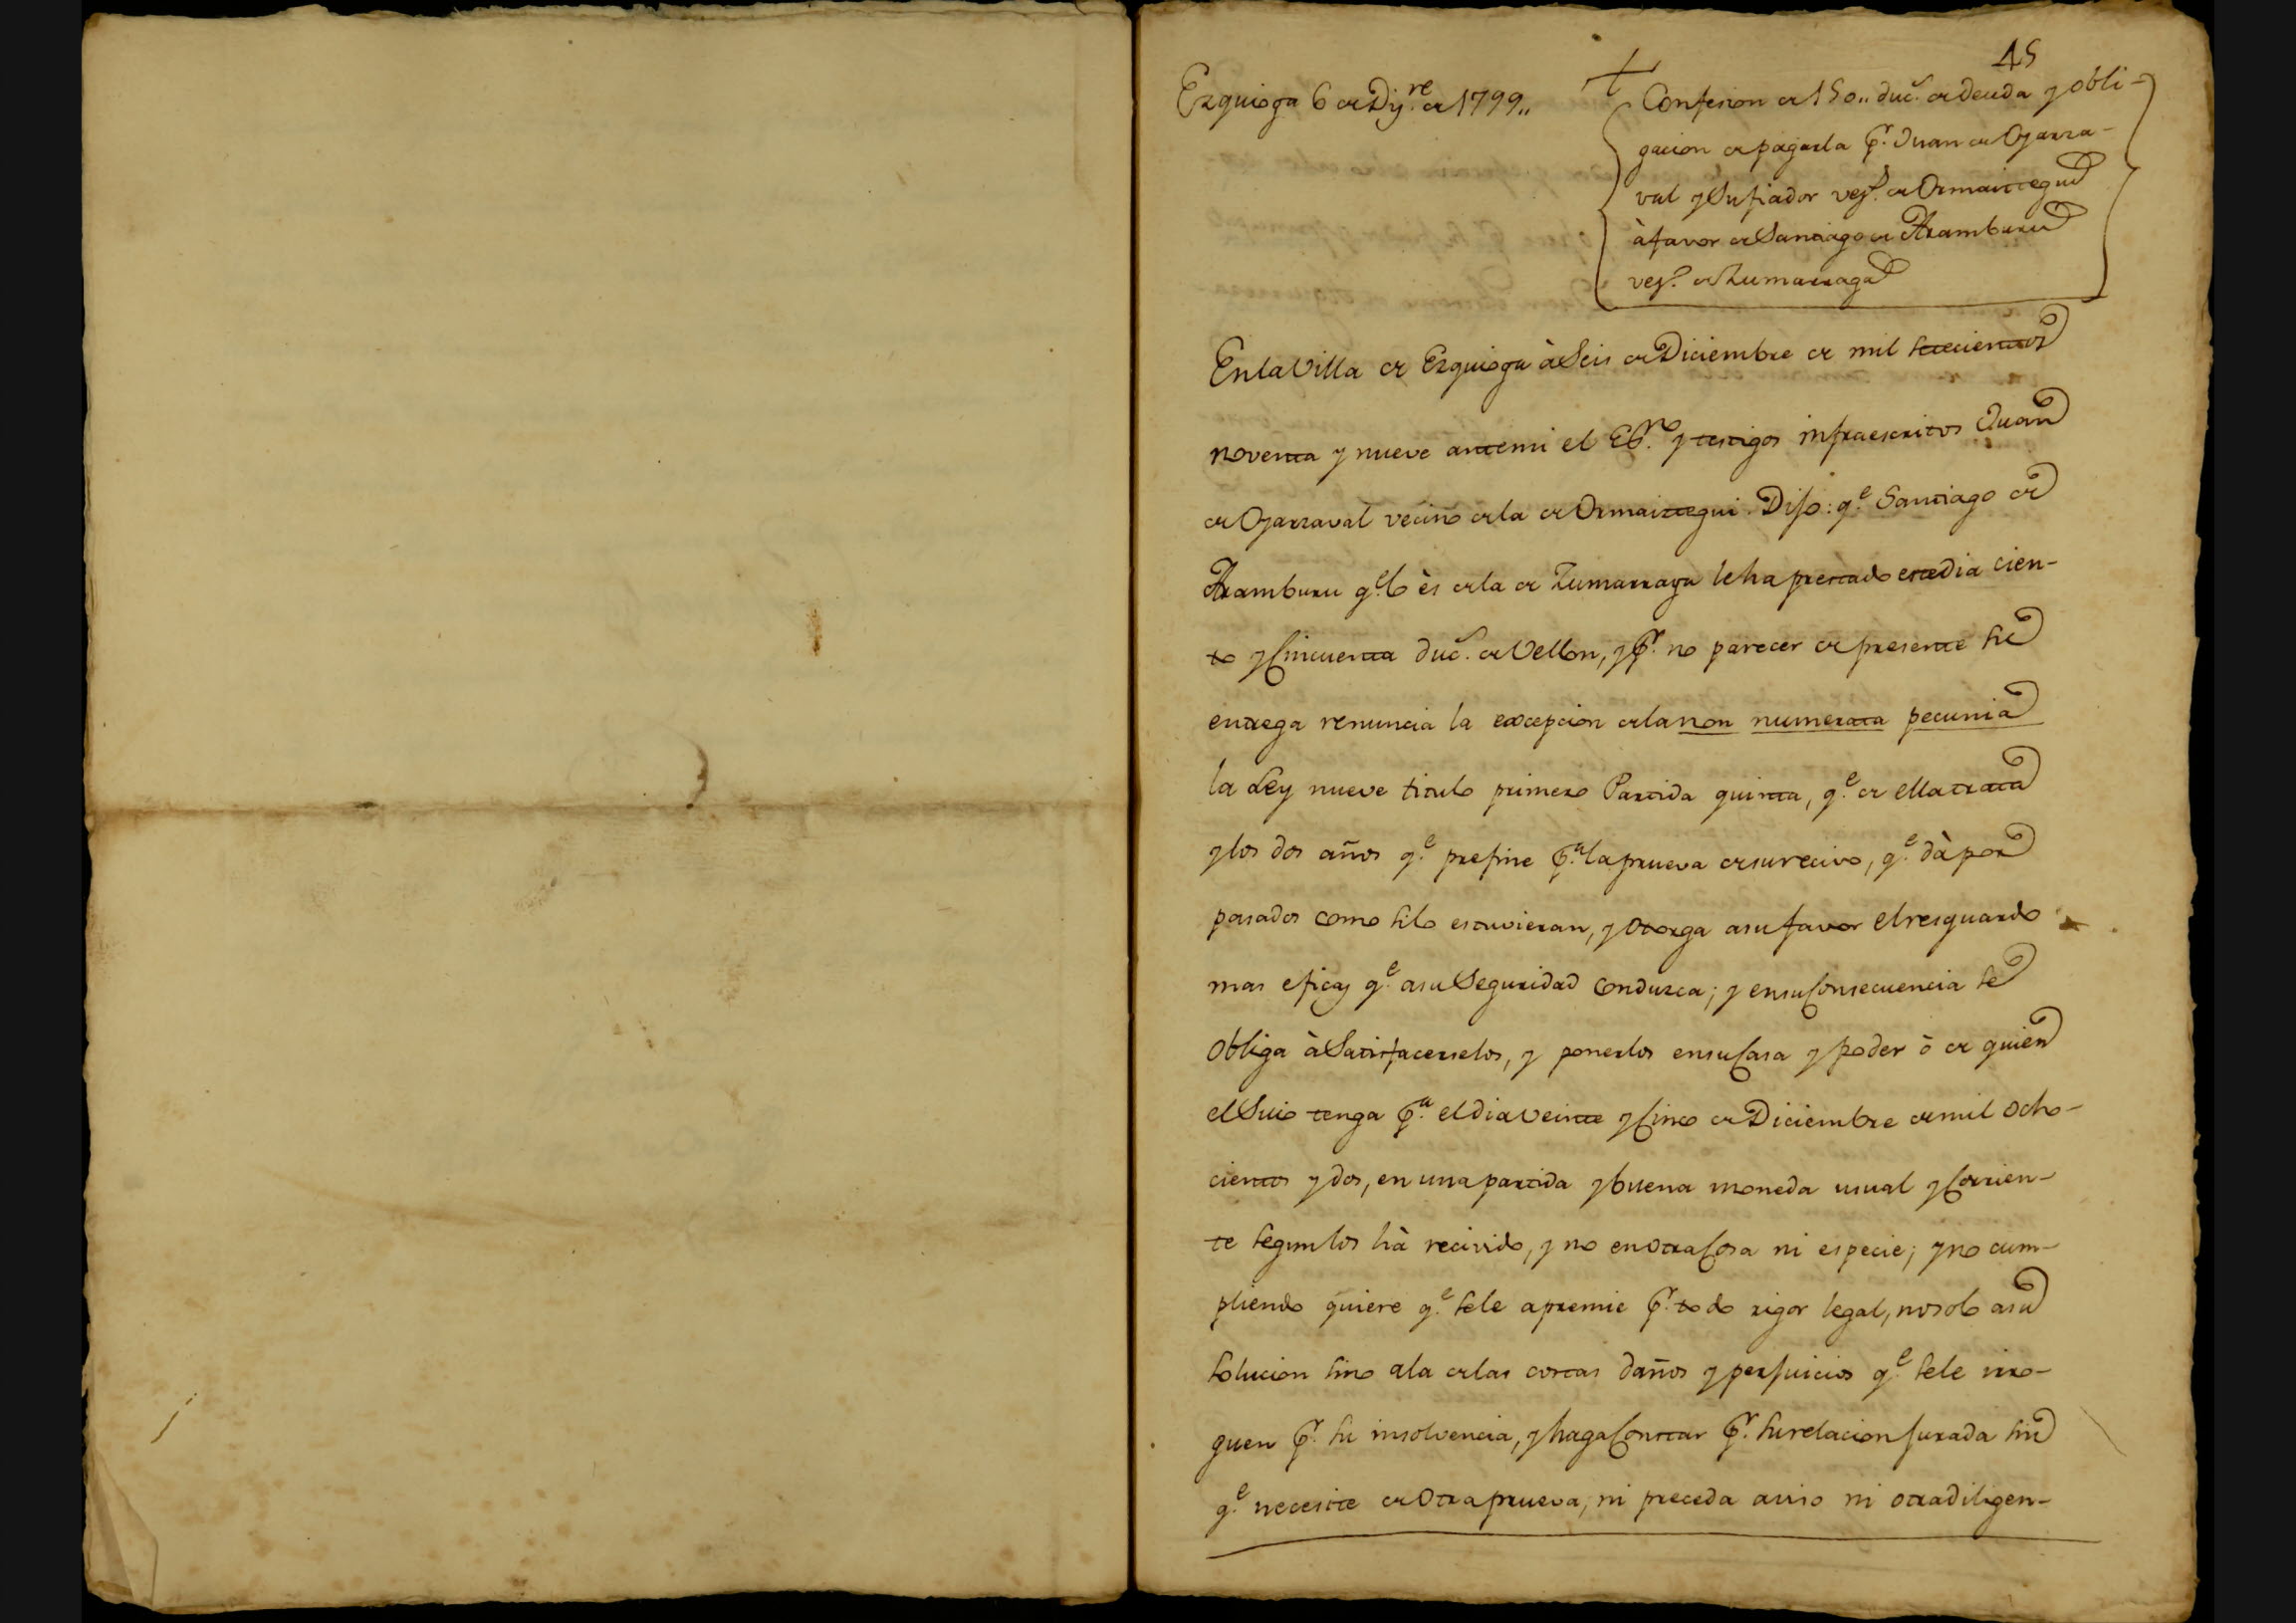 45
Ezquioga 6 de Dizre. de 1799,,
+
Confesion de 150,, duc.s de deuda y obli-
gacion de pagarla pr. Juan de Ojarza-
val y Su fiador vez.s de Ormaiztegui
à favor de Santiago de Aramburu
vez.o de Zumarraga
En la Villa de Ezquioga à Seis de Diciembre de mil setecientos
noventa y nueve ante mi el Esno. y testigos infraescritos Juan
de Ojarzaval vecino de la de Ormaiztegui Dijo: qe. Santiago de
Aramburu qe. lo ès de la de Zumarraga le ha prestado este dia cien-
to y Cincuenta duc.s de Vellon, y pr. no parecer de presente su
entrega renuncia la excepcion de la non numerata pecunia
la Ley nueve titulo primero Partida quinta, qe. de ella trata
y los dos años qe. prefine pa. la prueva de su recivo, qe. dà por
pasados como si lo estuvieran, y Otorga a su favor el resguardo
mas eficaz qe. a su Seguridad Conduzca; y en su Consecuencia se
Obliga à Satisfacerselos, y ponerlos en su Casa y poder ò de quien
el Suio tenga pa. el dia Veinte y Cinco de Diciembre de mil Ocho-
cientos y dos, en una partida y buena moneda usual y Corrien-
te segun los hà recivido, y no en Otra Cosa ni especie; y no cum-
pliendo quiere qe. se le apremie pr. todo rigor legal, no solo a su
Solucion sino a la de las costas daños y perjuicios qe. se le irro-
guen pr. su insolvencia, y haga Constar pr. su relacion jurada sin
qe. necesite de Otra prueva, ni preceda aviso ni otra diligen-